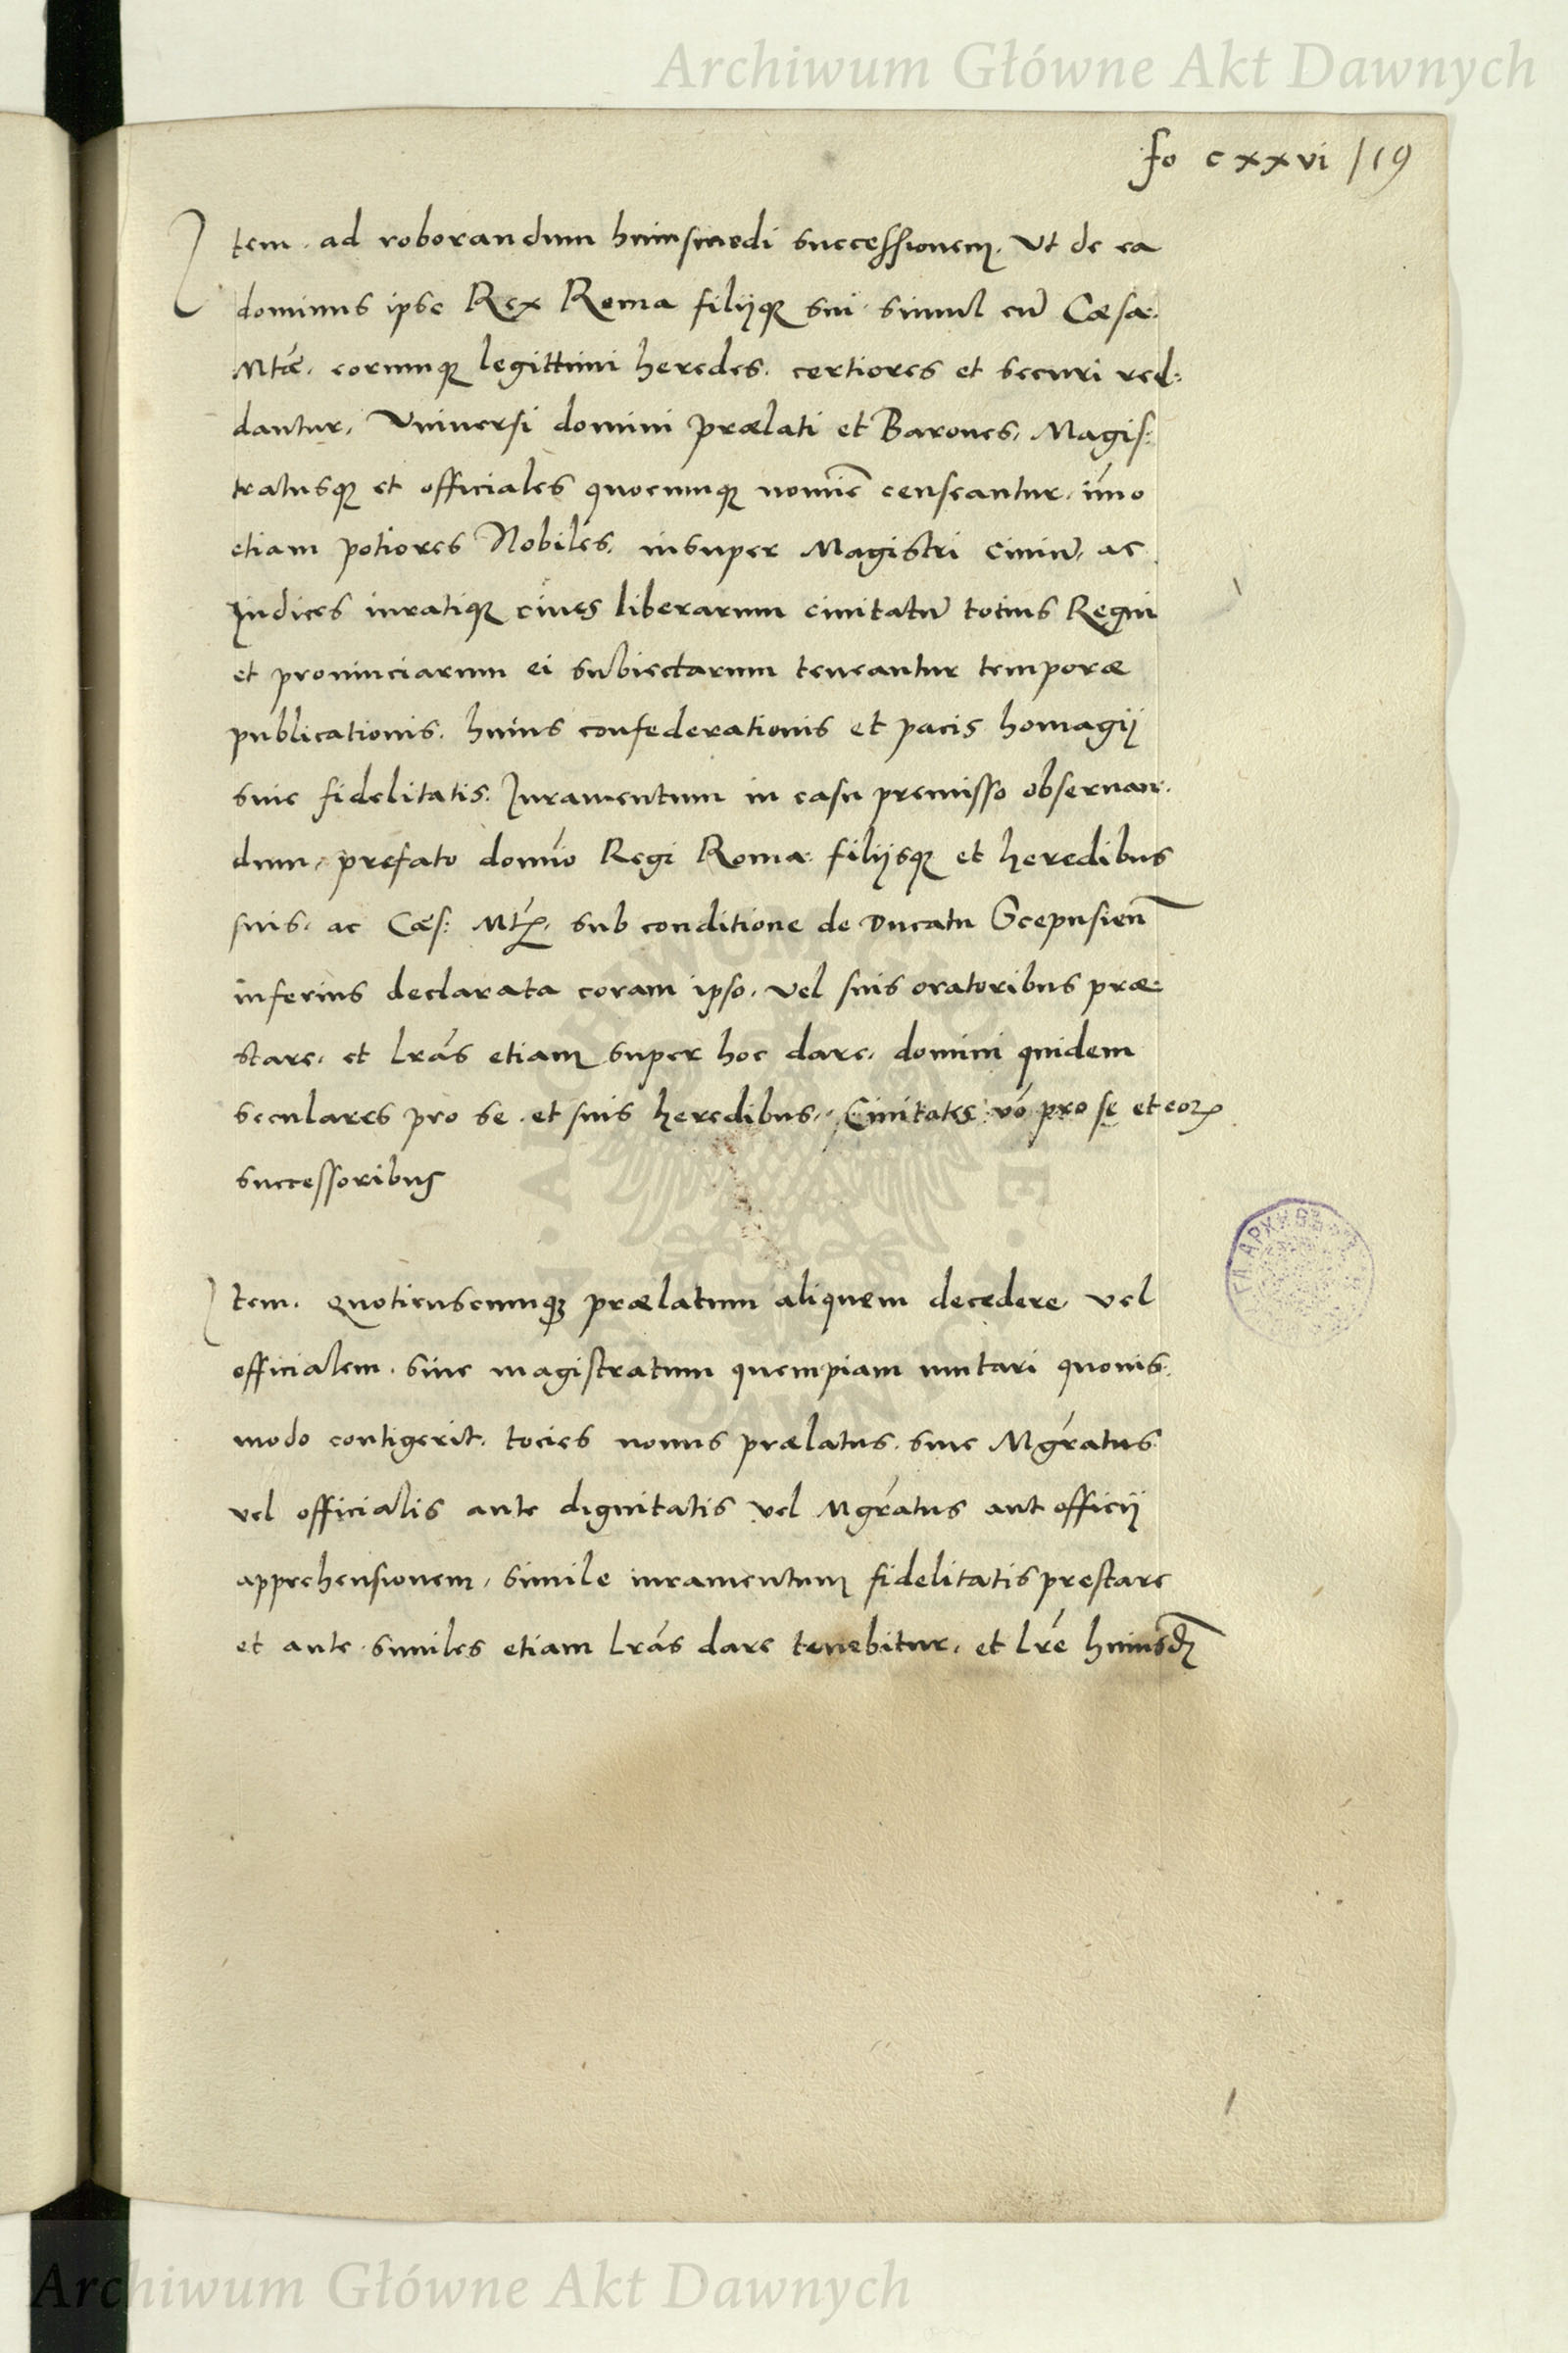 Archiwum Główne Akt Dawnych
fo cxxvi /19
Item . ad roborandum huiusmodi successionem. Vt de ea
dominus ipse Rex Roma filijq; sui simul cū Cæsa:
Mtē. eorumq; legittimi heredes. certiores et securi red:
dantur, Vniuersi domini prælati et Barones, Magis:
tratusq; et officiales quocumq; nomīe censeantur, īmo
etiam potiores Nobiles, insuper Magistri ciuiū, ac
Iudices iuratiq; ciues liberarum ciuitatū totius Regni
et prouinciarum ei subiectarum teneantur temporæ
publicationis. huius confederationis et pacis homagij
siue fidelitatis. Iuramentum in casu premisso obseruan:
dum, prefato domīo Regi Roma: filijsq; et heredibus
suis. ac Cæs: Mtꝭ. sub conditione de Ducatu Scepusieñ
inferius declarata coram ipso, vel suis oratoribus præ:
stare, et lrās etiam super hoc dare, domini quidem
seculares pro se et suis heredibus, Ciuitates vō pro se et eoꝝ
successoribus
Item. quotienscumq; prælatum aliquem decedere, vel
officialem. siue magistratum quempiam mutari quouis:
modo contigerit. tocies nouus prælatus. siue Mgrātus
vel officialis ante dignitatis vel Mgrātus aut officij
apprehensionem, simile iuramentum fidelitatis prestare
et ante similes etiam lrās dare tenebitur, et lrē huiusḍ
Archiwum Główne Akt Dawnych